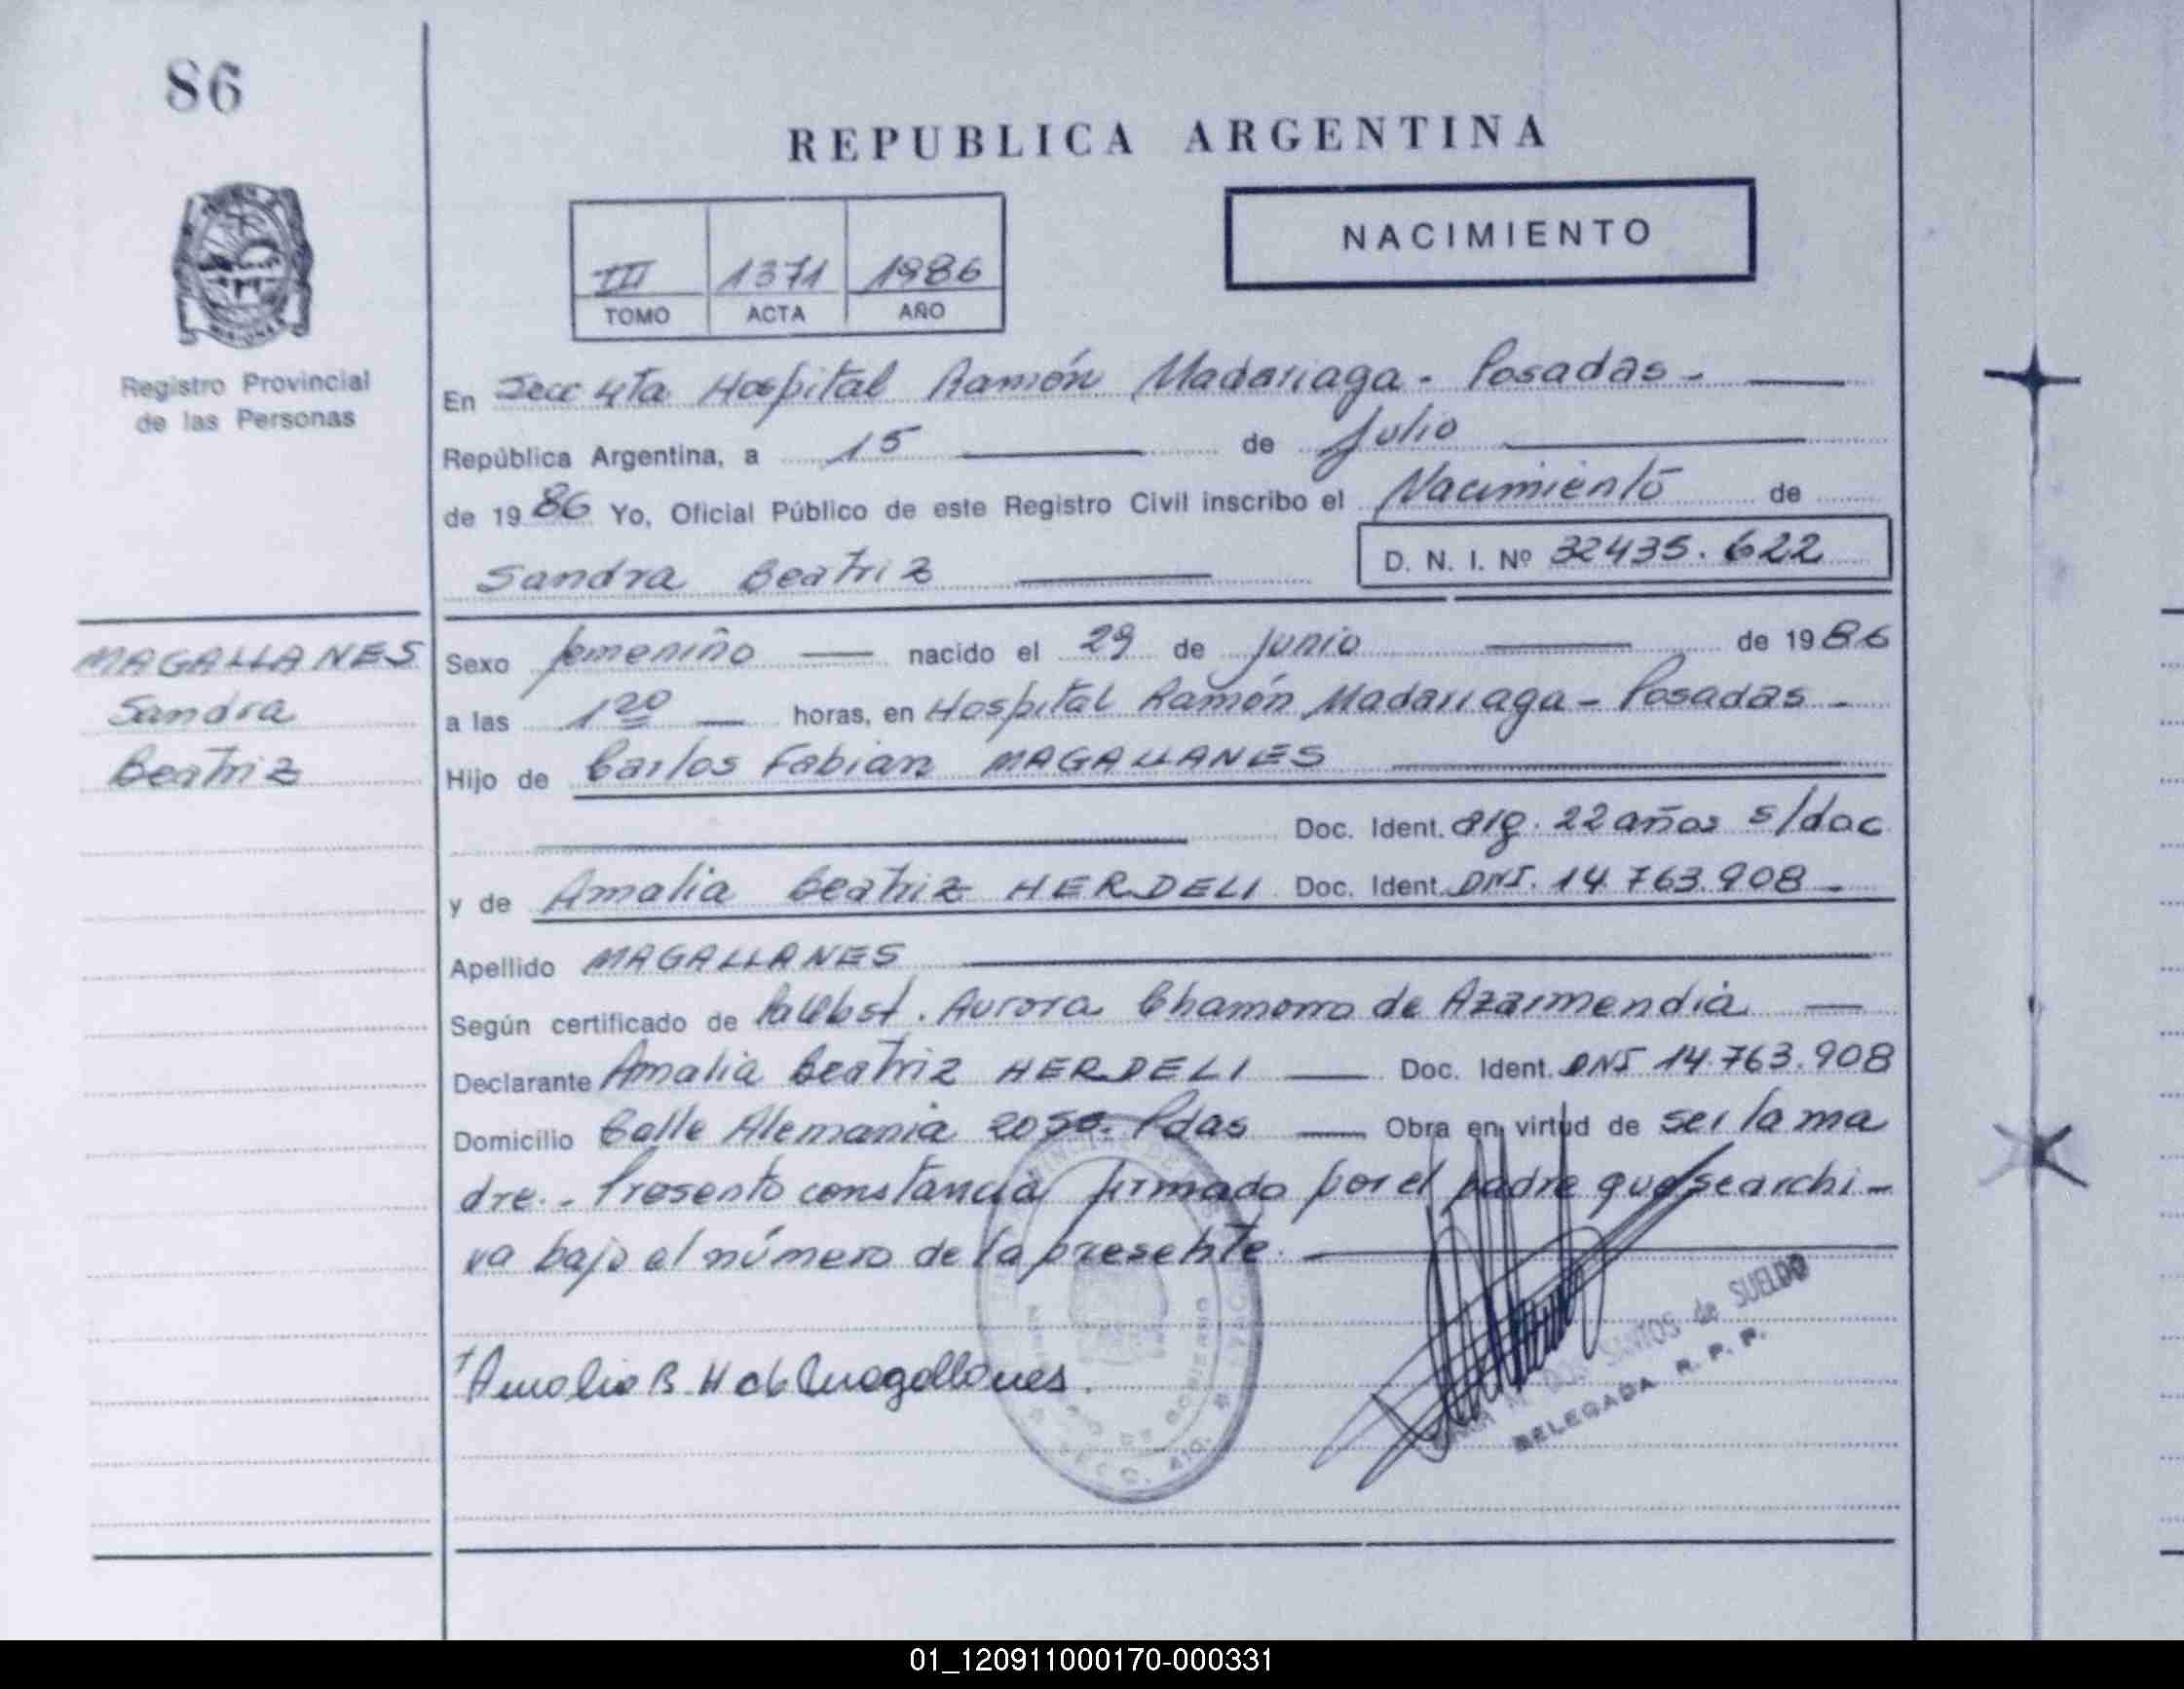 86
REPUBLICA ARGENTINA
NACIMIENTO
III 1371 1986
TOMO ACTA AÑO
Registro Provincial
de las Personas
En Secc 4ta Hospital Ramón Madariaga - Posadas -
República Argentina, a 15 de Julio
de 1986 Yo, Oficial Público de este Registro Civil inscribo el Nacimiento de
Sandra Beatriz D. N. I. Nº 32435.622
MAGALLANES
Sandra
Beatriz
Sexo femenino nacido el 29 de junio de 1986
a las 1 20 horas, en Hospital Ramón Madariaga - Posadas -
Hijo de Carlos Fabian MAGALLANES
Doc. Ident. arg. 22 años s/doc
y de Amalia Beatriz HERDELI Doc. Ident. DNI. 14.763.908 -
Apellido MAGALLANES
Según certificado de Aurora Chamorro de Azarmendia
Declarante Amalia Beatriz HERDELI Doc. Ident. DNI 14.763.908
Domicilio Calle Alemania 2050. Pdas Obra en virtud de ser la ma
dre. - Presento constancia firmado por el padre que se archi-
va bajo el número de la presente.
Amalia B. H de Magallanes.
DOS SANTOS de SUELDO
DELEGADA R. P. P.
01_120911000170-000331